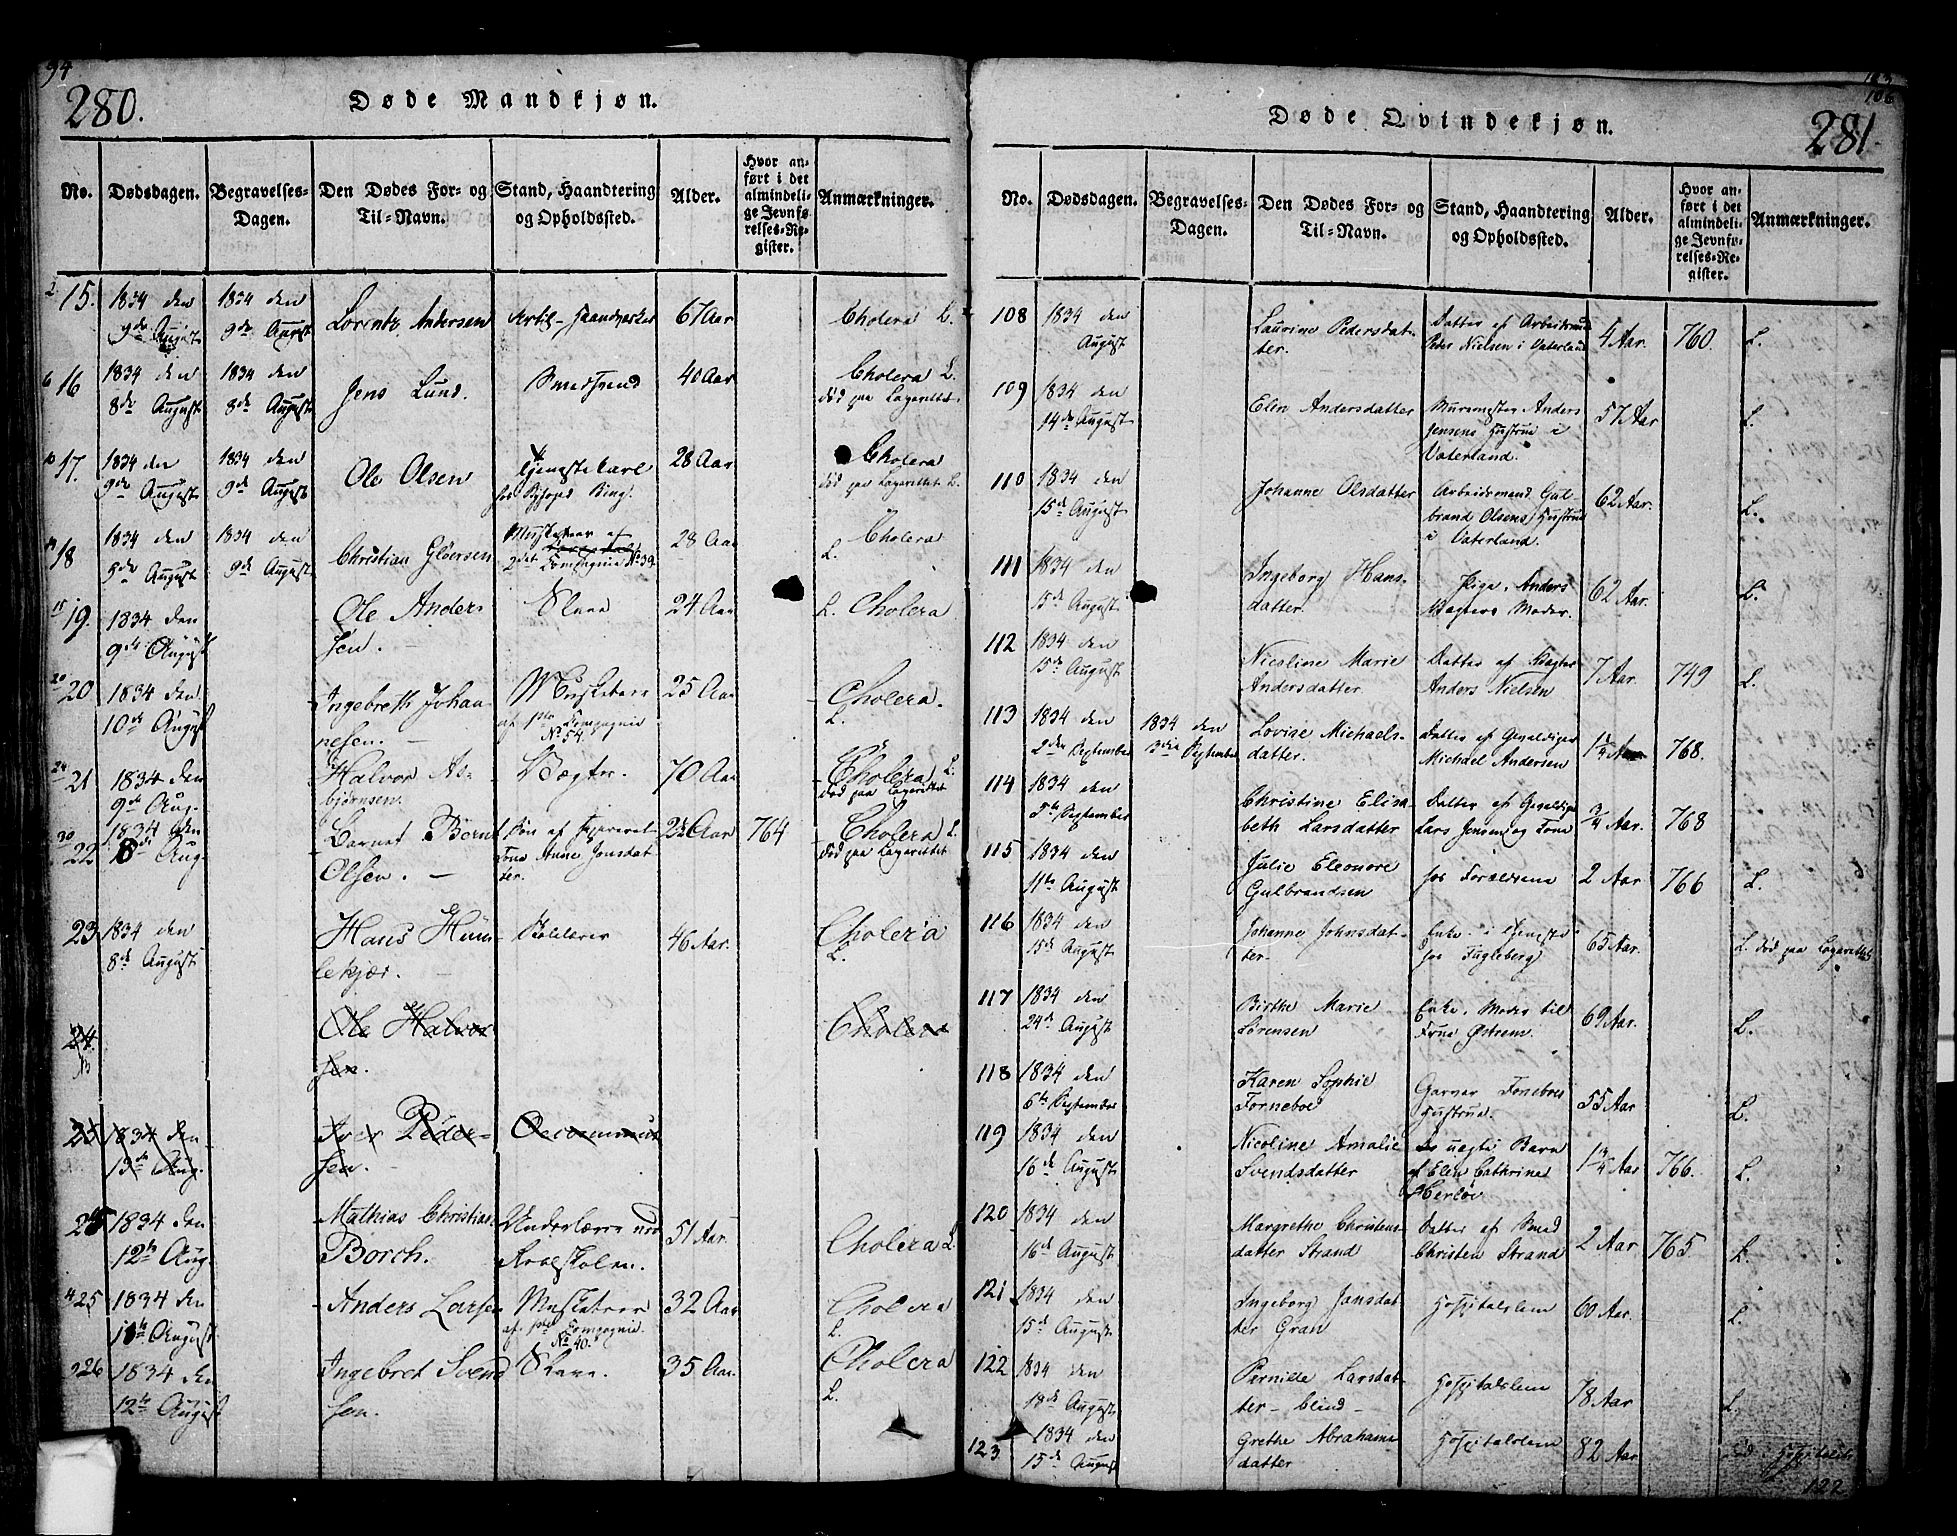 94
280.
Døde Mandkjøn.
No.
Dødsdagen.
Begravelses-Dagen.
Den Dødes For- og Til-Navn.
Stand, Haandtering og Opholdssted.
Alder.
Hvor anført i det almindelige Jevnførelses-Register.
Anmærkninger.
15. 1834 den 1834 den Lorentz Andersen Artil-Haandverker 67 Aar Cholera L.
9de August 9de August
16 1834 den 1834 den Jens Lund. Smedsvend 40 Aar Cholera L.
8de August 8de August død paa Lazarettet.
17. 1834 den 1834 den Ole Olsen Tjenestekarl 28 Aar Cholera
9de August 9de August død paa Lazarettet L.
18 1834 den 1834 den Christian Gløersen Musketeer af 28 Aar Cholera
9de August 9de August 2det Compagnie No 39 L.
19. 1834 den Ole Ander- Slave 24 Aar L. Cholera
9de August sen.
20 1834 den Ingebreth Johan- Musketeer 25 Aar Cholera.
10de August nesen. af 1ste Compagnie L.
No 54.
21 1834 den Halvor As- Vægter. 70 Aar Cholera L.
9de Aug. bjørnsen. død paa Lazarettet
22 1834 den Bernt Søn af 2½ Aar 764 Cholera L.
8de Aug. Olsen. Anne Jonsdat- død paa Lazarettet
ter.
23 1834 den Hans Hum- Skolelærer 46 Aar. Cholera
8de August lekjær. L.
24. Ole Halvor- Cholera
sen.
25 1834 den Iver Peder-
13de Aug. sen.
24 1834 den Mathias Christian Underlærer ved 51 Aar. Cholera L.
12te Aug. Borch. Realskolen.
25 1834 den Anders Larsen Musketeer 32 Aar Cholera
11te August af 1ste Compagnie. L.
No 40.
26 1834 den Ingebret Svend- Slave. 35 Aar. Cholera
12te August sen. L.
106
281.
Døde Qvindekjøn.
No.
Dødsdagen.
Begravelses-Dagen.
Den Dødes For- og Til-Navn.
Stand, Haandtering og Opholdssted.
Alder.
Hvor anført i det almindelige Jevnførelses-Register.
Anmærkninger.
108 1834 den Laurine Pedersdat- Datter af Arbeidsmd 4 Aar. 760 L.
August ter. Peder Nielsen i Vaterland
109 1834 den Elen Andersdatter Murmester Anders 57 Aar L.
14de August Jensens Hustrue i
Vaterland.
110 1834 den Johanne Olsdatter Arbeidsmand Gul- 62 Aar. L.
15de August brand Olsens Hustrue
i Vaterland.
111 1834 den Ingeborg Hans- Pige, Anders 62 Aar. L.
15de August datter. Vægters Moder.
112 1834 den Nicoline Marie Datter af Vægter 7 Aar. 749 L.
15de August Andersdatter. Anders Nielsen
113 1834 den 1834 den Lovise Michaels- Datter af Gevaldiger 1¼ Aar 768.
2den September 3die September datter. Michael Andersen
114 1834 den Christine Elisa- Datter af Gevaldiger ¾ Aar. 768
5te September beth Larsdatter Lars Jensen og Kone
115 1834 den Julie Eleonore hos Forældrene 2 Aar 766 L.
11te August Gulbrandsen
116 1834 den Johanne Johnsdat- Enke i Tjeneste 65 Aar. L. død paa Lazarettet
15de August ter. hos Fugleberg
117 1834 den Birthe Marie Enke. Moder til 69 Aar. L.
24de August Sørensen Frue Østrem.
118 1834 den Karen Sophie Garver Fonneboes 55 Aar L.
6te September Forneboe Hustrue.
119 1834 den Nicoline Amalie uægte Barn 1¼ Aar 766. L.
16de August Svendsdatter af Elen Cathrine
Herløv
120 1834 den Margrethe Christens- Datter af Smed 2 Aar 765 L.
16de August datter Strand Christen Strand
121 1834 den Ingeborg Jansdat- Hospitalslem 60 Aar. L.
15de August ter Gran
122 1834 den Pernille Larsdat- Hospitalslem 78 Aar L.
18de August ter - blind -
123 1834 den Grethe Abrahams- Hospitalslem 82 Aar
15de August datter
122